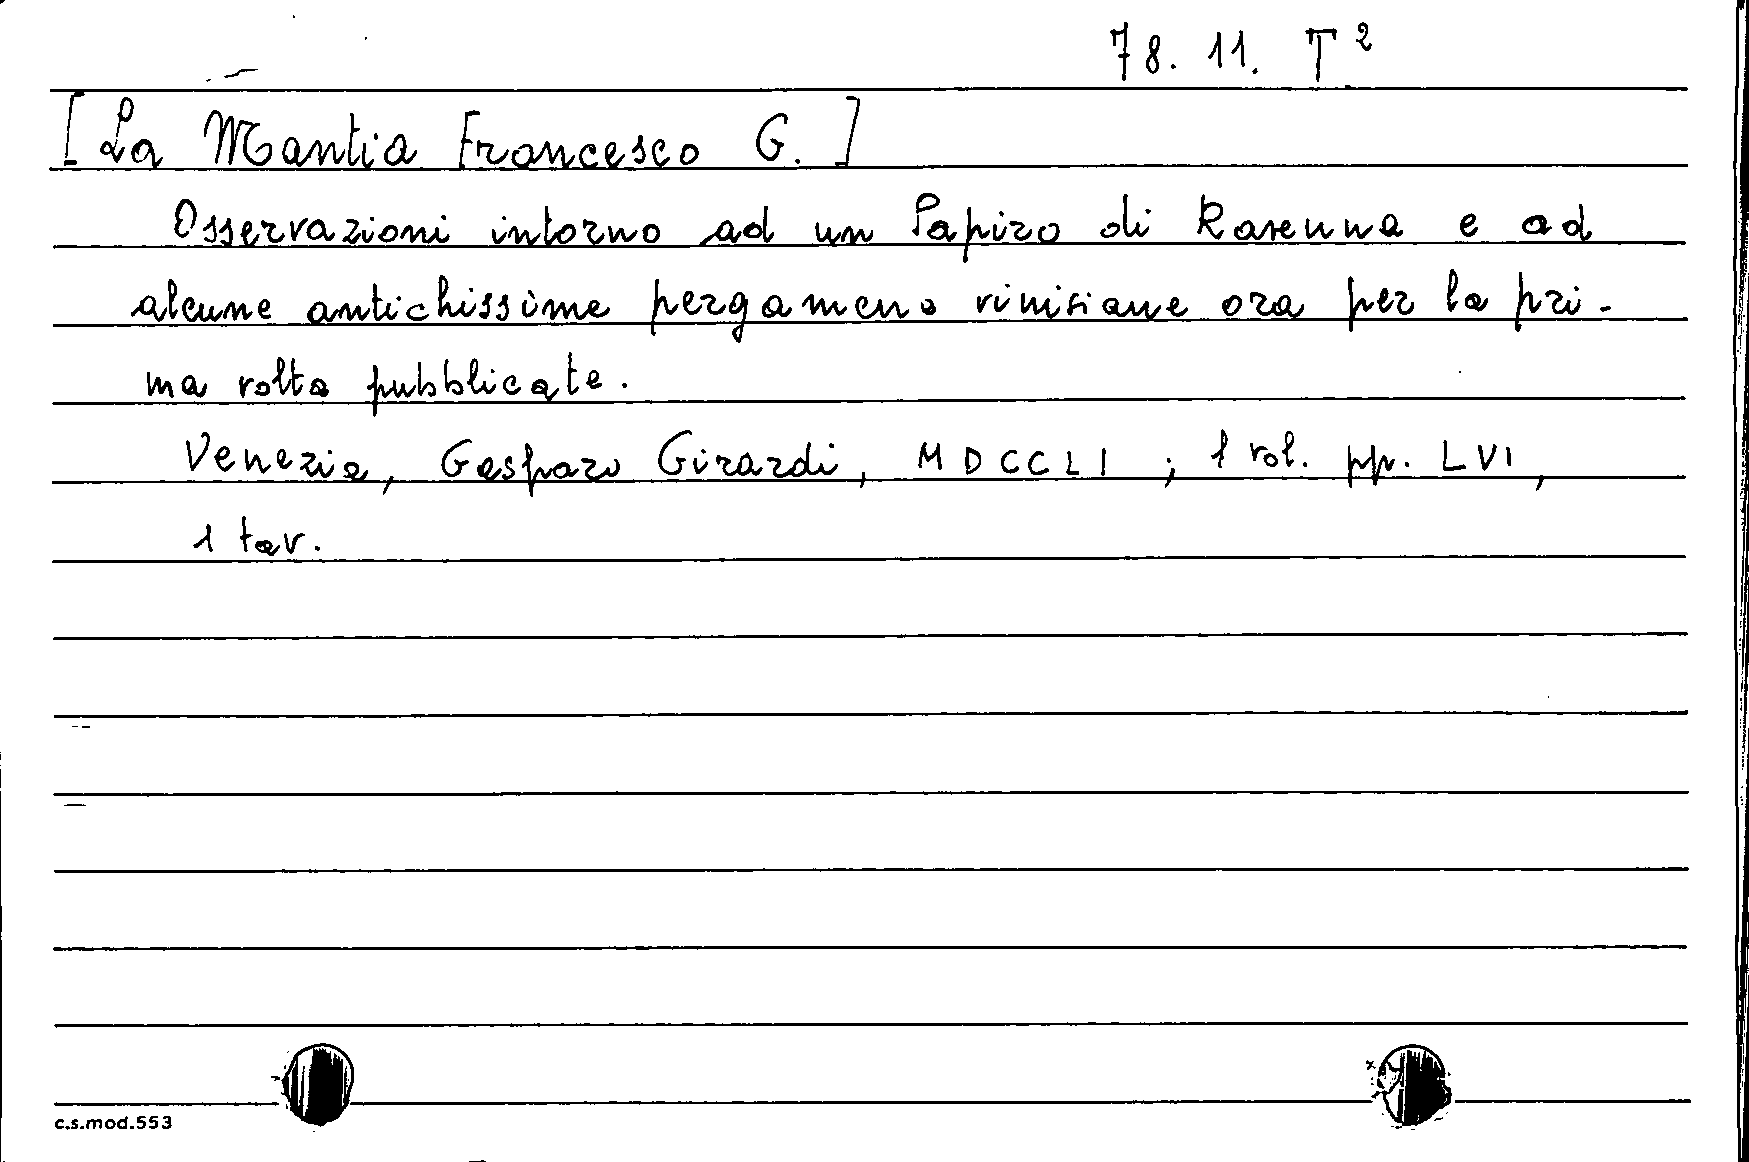 78. 11. T²
[La Mantia Francesco G.]
Osservazioni intorno ad un Papiro di Ravenna e ad
alcune antichissime pergamene vinisiane ora per la pri-
ma volta pubblicate.
Venezia, Gasparo Girardi, MDCCLI; 1 vol. pp. LVI,
1 tav.
c.s.mod.553